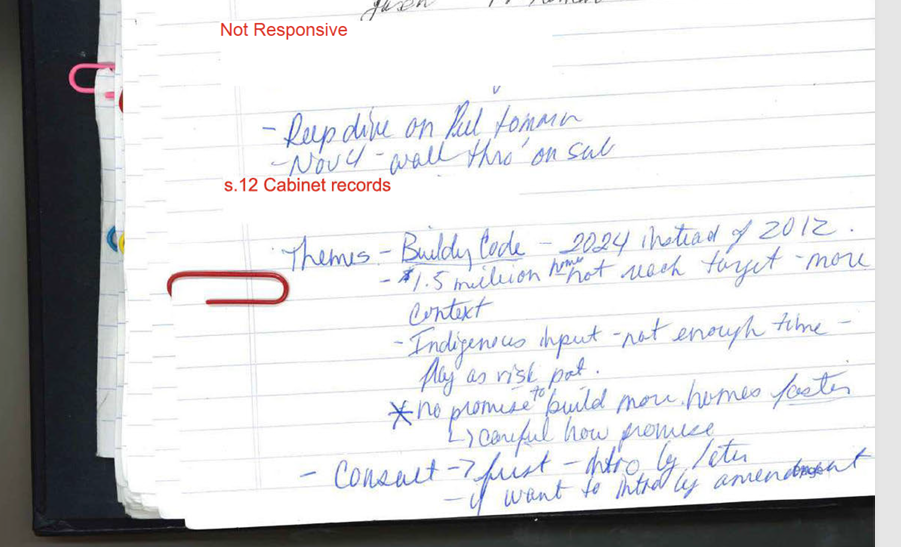 Jason
Not Responsive
- Deep dive on Peel tomorrow
- Nov 4 - walk thro' on sub
s.12 Cabinet records
Themes - Building Code - 2024 instead of 2012.
- $1.5 million homes not reach target - more
context
- Indigenous input - not enough time -
flag as risk pot.
* no promise to build more homes faster
↳ careful how promise
- Consult → first - intro leg later
- if want to intro leg amendment